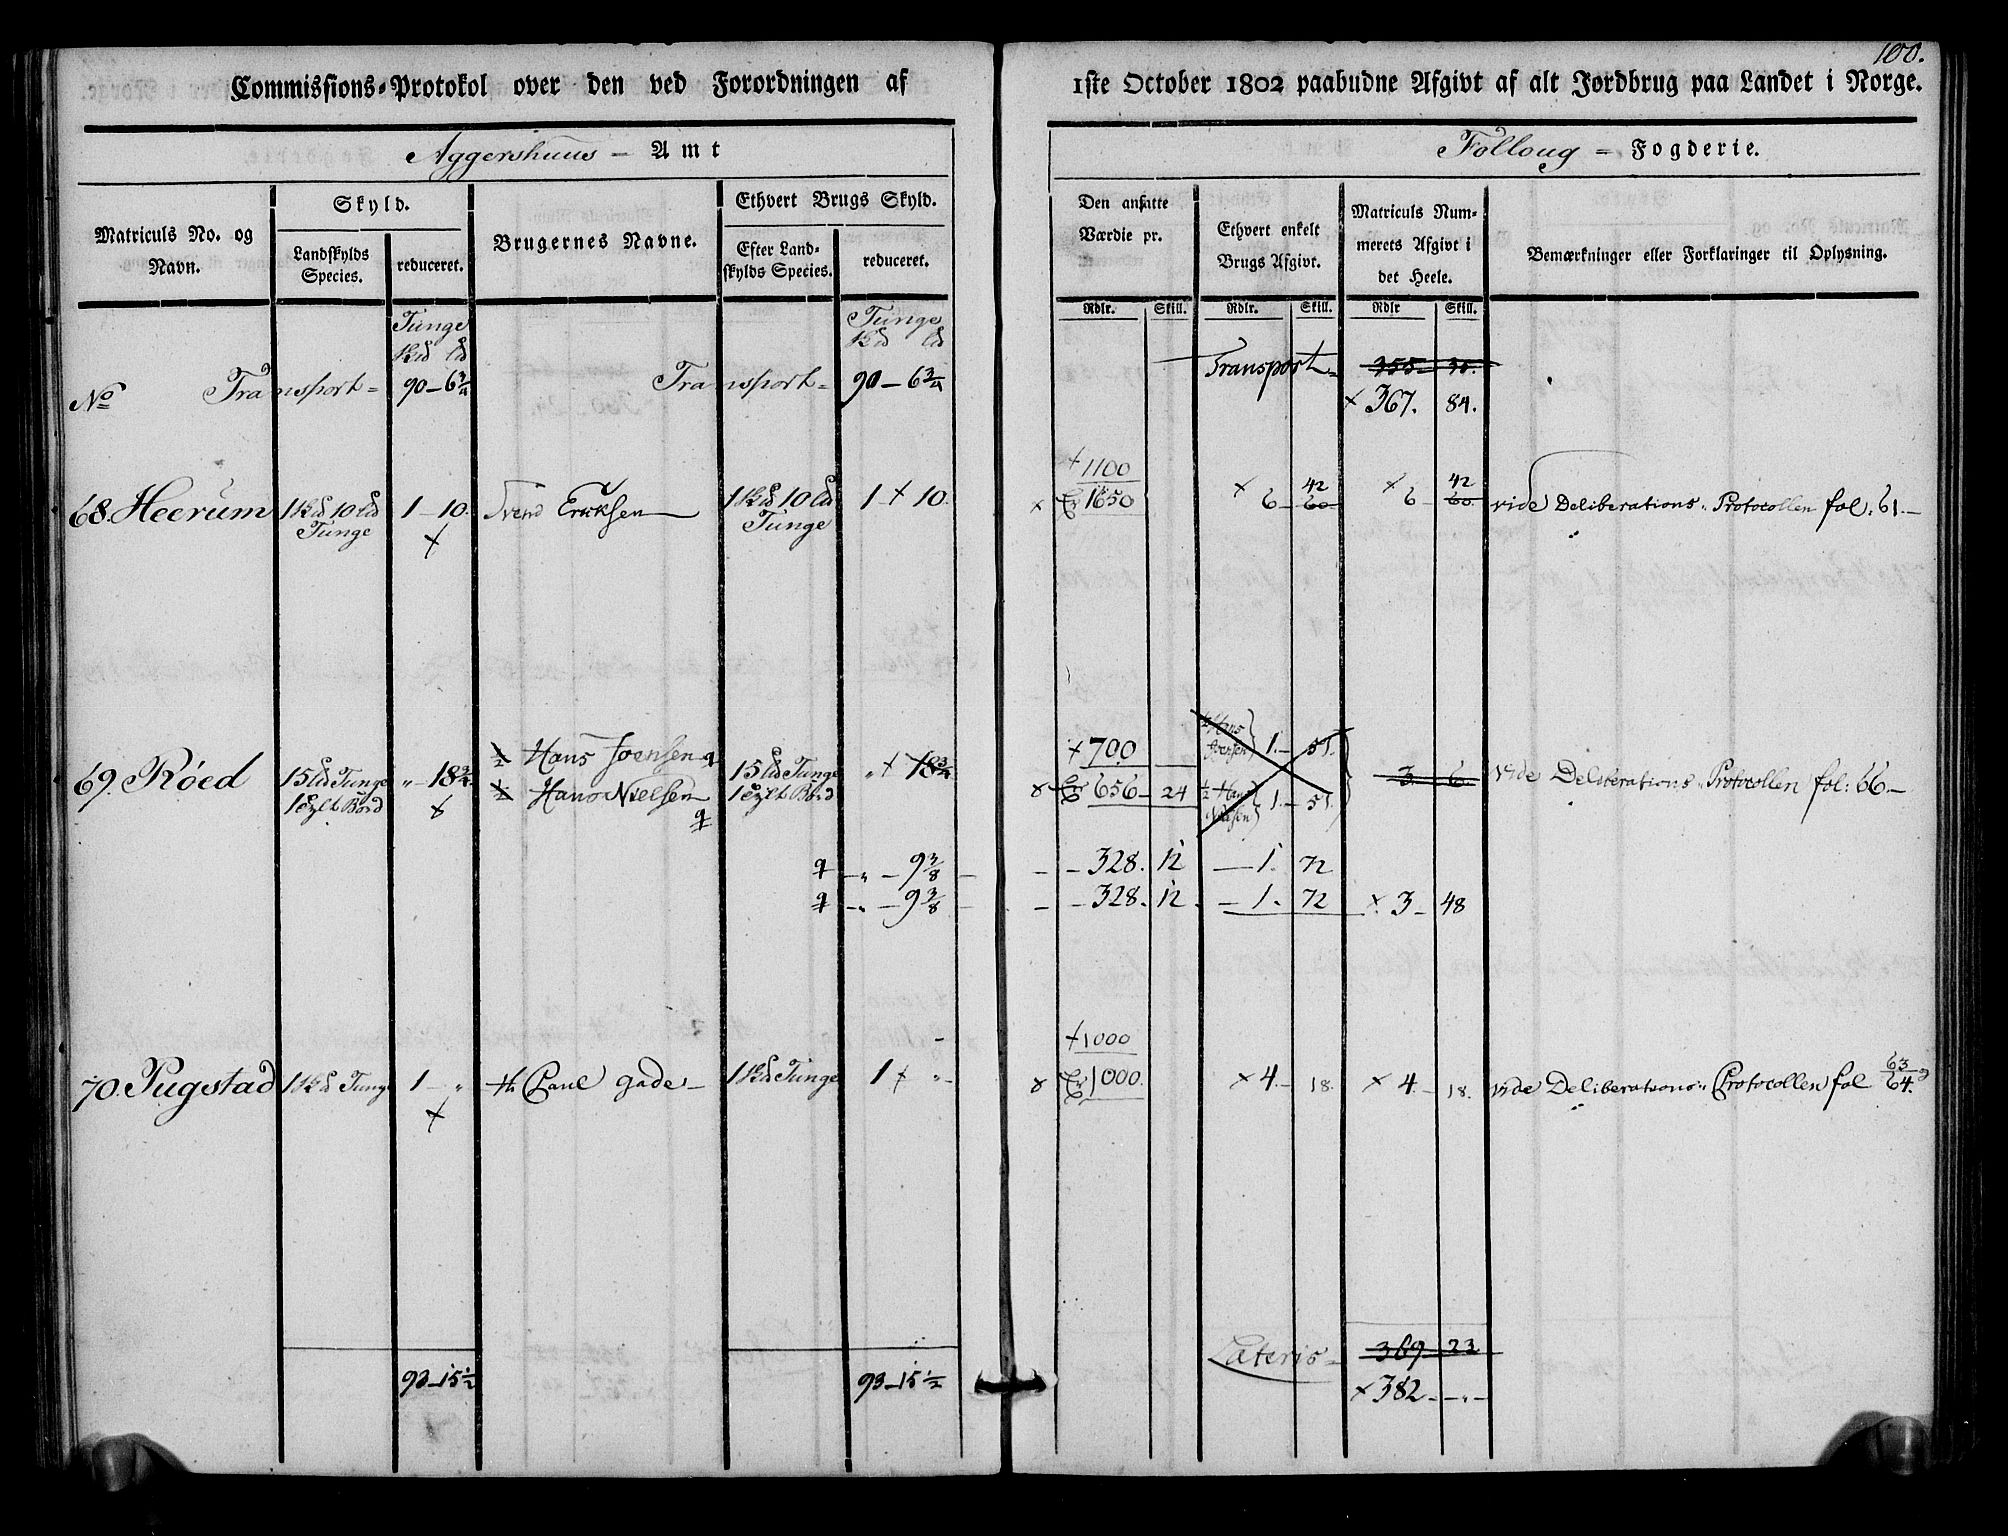 100.
Commissions-Protokol over den ved Forordningen af 1ste October 1802 paabudne Afgivt af alt Jordbrug paa Landet i Norge.
Aggershuus - Amt
Folloug = Fogderie.
Matriculs No. og Navn.
Skyld.
Landskylds Species.
reduceret.
Brugernes Navne.
Ethvert Brugs Skyld.
Efter Landskylds Species.
reduceret.
Den ansatte Værdie pr.
Rdlr. Skill.
Ethvert enkelt Brugs Afgivt.
Rdlr. Skill.
Matriculs Nummerets Afgivt i det Heele.
Rdlr Skill.
Bemærkninger eller Forklaringer til Oplysning.
Tunge Tunge
No Transport = 90 - 6 3/4 Transport = 90 - 6 3/4 Transport = 355 - 30.
× 367. 84.
+ 1100
42 42
68. Heerum 1 10 1 - 10. Svend Ericksen 1 10 1 × 10. × 1650 × 6 - 60 × 6 - 60. vide Deliberations-Protocollen fol: 61.
Tunge × Tunge
½ Hans Joensen + 700 ½ Hans Joensen 1. - 51.
69. Röed 15 Tunge „ - 18 3/4 15 Tunge „ × 18 3/4 3 - 6 vide Deliberations-Protocollen fol: 66.
1 Bord ½ Hans Nielsen 1 Bord 656 - 24 ½ Hans Nielsen 1. - 51.
„ - 9 3/8 - 328. 12 - 1. 72
„ - 9 3/8 - 328. 12. - 1. 72 × 3 - 48
+ 1000
70. Pugstad 1 Tunge 1 - „ Hr Paul Gade 1 Tunge 1 × „ 1000. × 4 - 18. × 4 - 18. vide Deliberations-Protocollen fol 63/64.
×
Lateris = 369 - 23
93 - 15 ½ 93 - 15 ½ × 382 - „ -